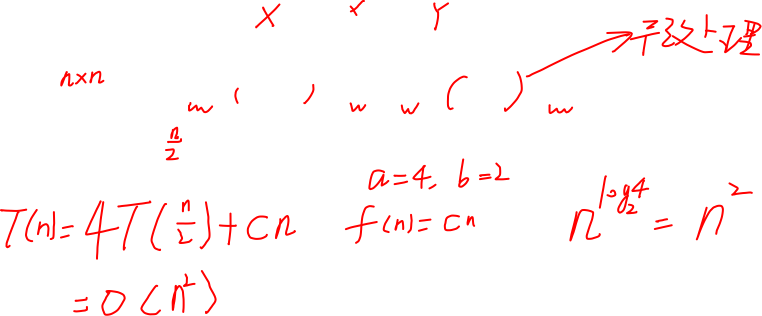 X × Y
预处理
n×n
w ( ) w w ( ) w
n/2
a=4, b=2
T(n)=4T(n/2)+cn f(n)=cn n^log₂4 = n²
=O(n²)